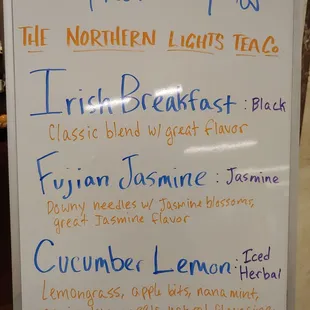 THE NORTHERN LIGHTS TEA CO
Irish Breakfast : Black
Classic blend w/ great flavor
Fujian Jasmine : Jasmine
Downy needles w/ Jasmine blossoms,
great Jasmine flavor
Cucumber Lemon : Iced
Herbal
Lemongrass, apple bits, nana mint,